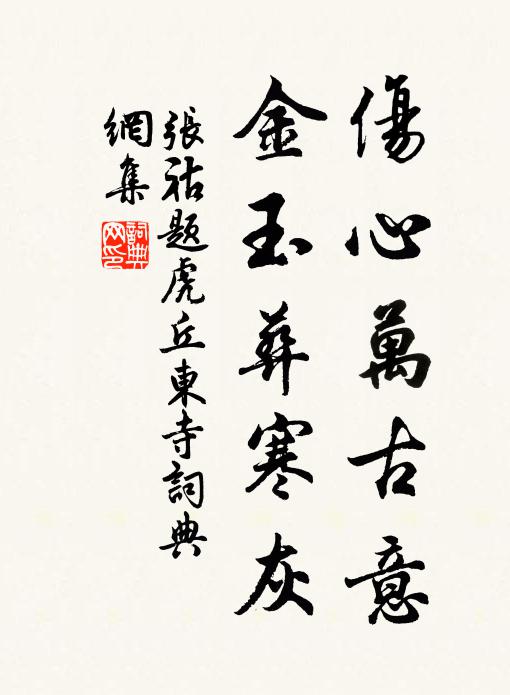 傷心萬古意
金玉葬寒灰
張祜題虎丘東寺詞典
網集
詞典
网印